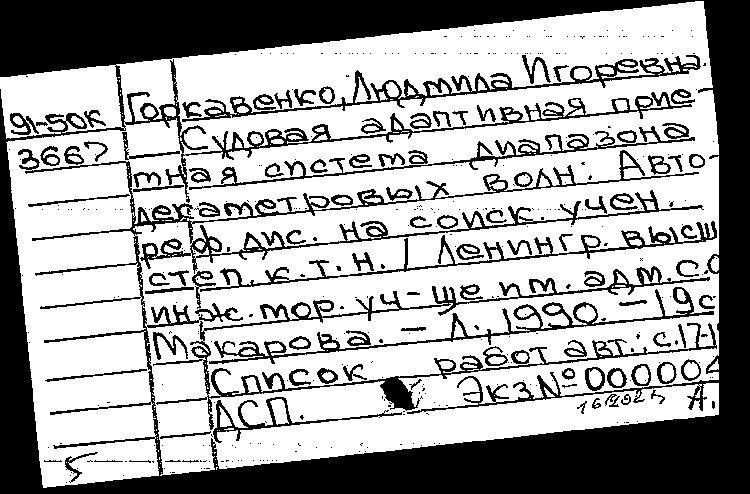 Горкавенко, Людмила Игоревна.
91-50К
3667
Судовая адаптивная прие-
мная система диапазона
декаметровых волн: Авто-
реф. дис. на соиск. учен.
степ. к. т. н. / Ленингр. высш
инж. мор. уч-ще им. адм. С.О
Макарова. – Л., 1990. – 19с
Список работ авт.: с. 17-1
ДСП. Экз № 000004
А.
5